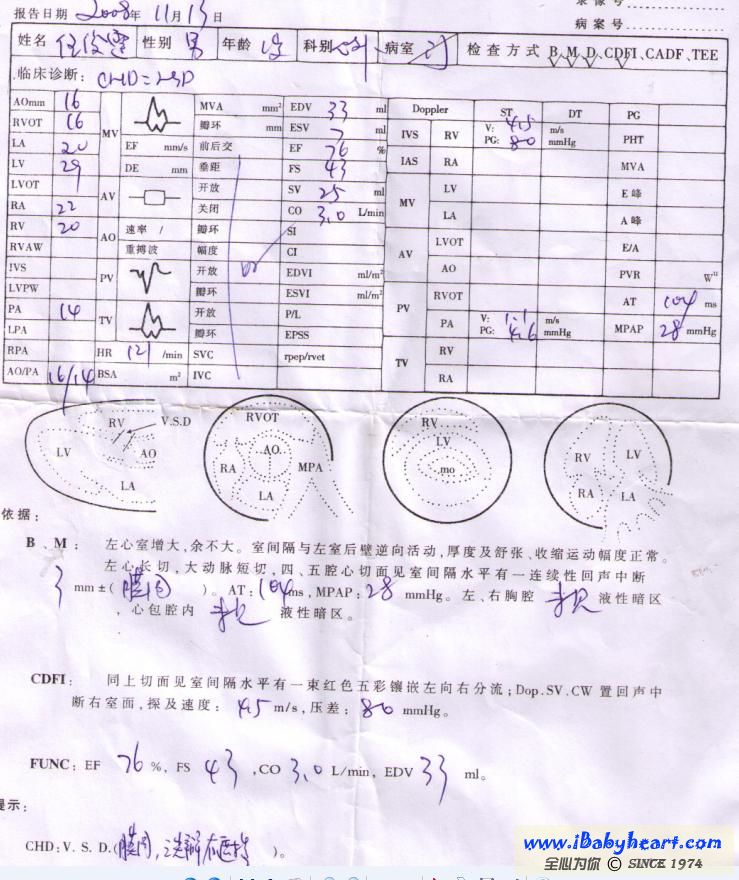 报告日期 2008年 11月13日
病案号
姓名 性别 男 年龄 科别 病室 检查方式 B、M、D、CDFI、CADF、TEE
临床诊断: CHD=VSD
AOmm 16 MV MVA mm² EDV 33 ml Doppler ST DT PG
RVOT 16 瓣环 mm ESV 7 ml IVS RV V: 4.5 m/s PG: 80 mmHg PHT
LA 20 EF mm/s 前后交 EF 76 % IAS RA MVA
LV 29 DE mm 垂距 FS 43 MV LV E峰
LVOT AV 开放 SV 25 ml LA A峰
RA 22 关闭 CO 3.0 L/min AV LVOT E/A
RV 20 AO 速率 / 瓣环 SI AO PVR
RVAW 重搏波 幅度 CI
IVS PV 开放 EDVI ml/m² PV RVOT AT 104 ms
LVPW 瓣环 ESVI ml/m² PA V: 1.1 m/s PG: 4.6 mmHg MPAP 28 mmHg
PA 14 TV 开放 P/L TV RV
LPA 瓣环 EPSS RA
RPA HR 121 /min SVC rpep/rvet
AO/PA 16/14 BSA m² IVC
RV V.S.D LV AO LA
RVOT AO RA MPA LA
RV LV mo
RV LV RA LA
依据:
B、M: 左心室增大,余不大。室间隔与左室后壁逆向活动,厚度及舒张、收缩运动幅度正常。
左心长切,大动脉短切,四、五腔心切面见室间隔水平有一连续性回声中断
3 mm±(膜周)。AT:104ms,MPAP:28 mmHg。左、右胸腔 未见 液性暗区
、心包腔内 未见 液性暗区。
CDFI: 同上切面见室间隔水平有一束红色五彩镶嵌左向右分流;Dop.SV.CW 置回声中
断右室面,探及速度: 4.5 m/s,压差: 80 mmHg。
FUNC: EF 76 %, FS 43 ,CO 3.0 L/min, EDV 33 ml。
提示:
CHD:V.S.D.(膜周, )。
www.iBabyheart.com
全心为你 © SINCE 1974